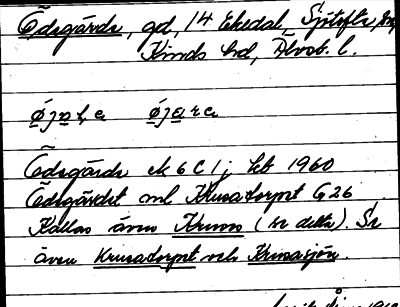 Ödegärde, gd, 14 Ekedal, Sjötofta sn,
Kinds hd, Älvsb. l.
øjaha øjara
Ödegärde ek 6 C 1 j kb 1960
Ödegärdet enl Krusatorpet G26
Kallas även Kruses (se detta). Se
även Krusatorpet och Krusasjön.